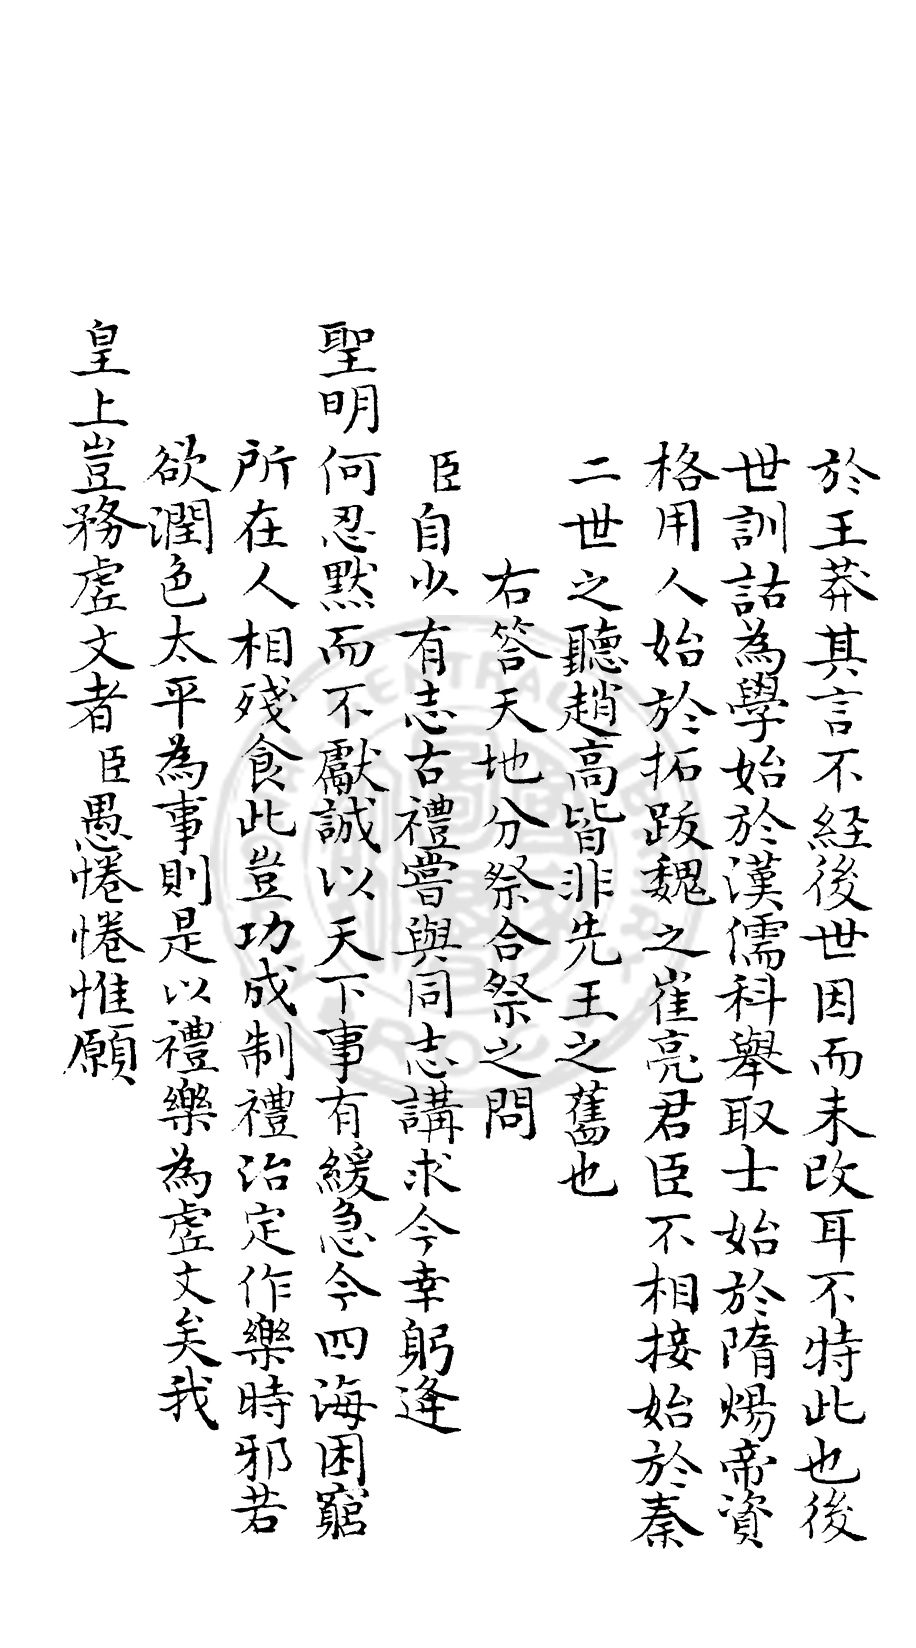 於王莽其言不經後世因而未改耳不特此也後
世訓詁為學始於漢儒科舉取士始於隋煬帝資
格用人始於拓跋魏之崔亮君臣不相接始於秦
二世之聽趙高皆非先王之舊也
右答天地分祭合祭之問
臣自少有志古禮嘗與同志講求今幸躬逢
聖明何忍默而不獻誠以天下事有緩急今四海困窮
所在人相殘食此豈功成制禮治定作樂時邪若
欲潤色太平為事則是以禮樂為虛文矣我
皇上豈務虛文者臣愚惓惓惟願